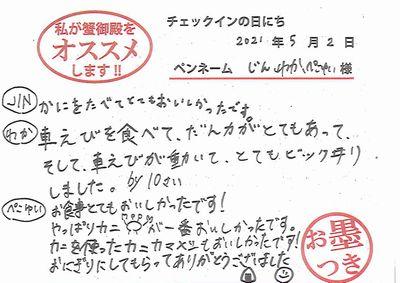 私が蟹御殿を
オススメ
します!!
チェックインの日にち
2021年5月2日
ペンネーム じん わか ぺこゆい 様
JIN かにをたべてとてもおいしかったです。
わか 車えびを食べて、だん力がとてもあって、
そして、車えびが動いて、とてもビックリ
しました。by 10さい
ぺこゆい お食事とてもおいしかったです!
やっぱりカニが一番おいしかったです。
カニを使ったカニカマメシもおいしかったです!
おにぎりにしてもらってありがとうございました
お墨
つき